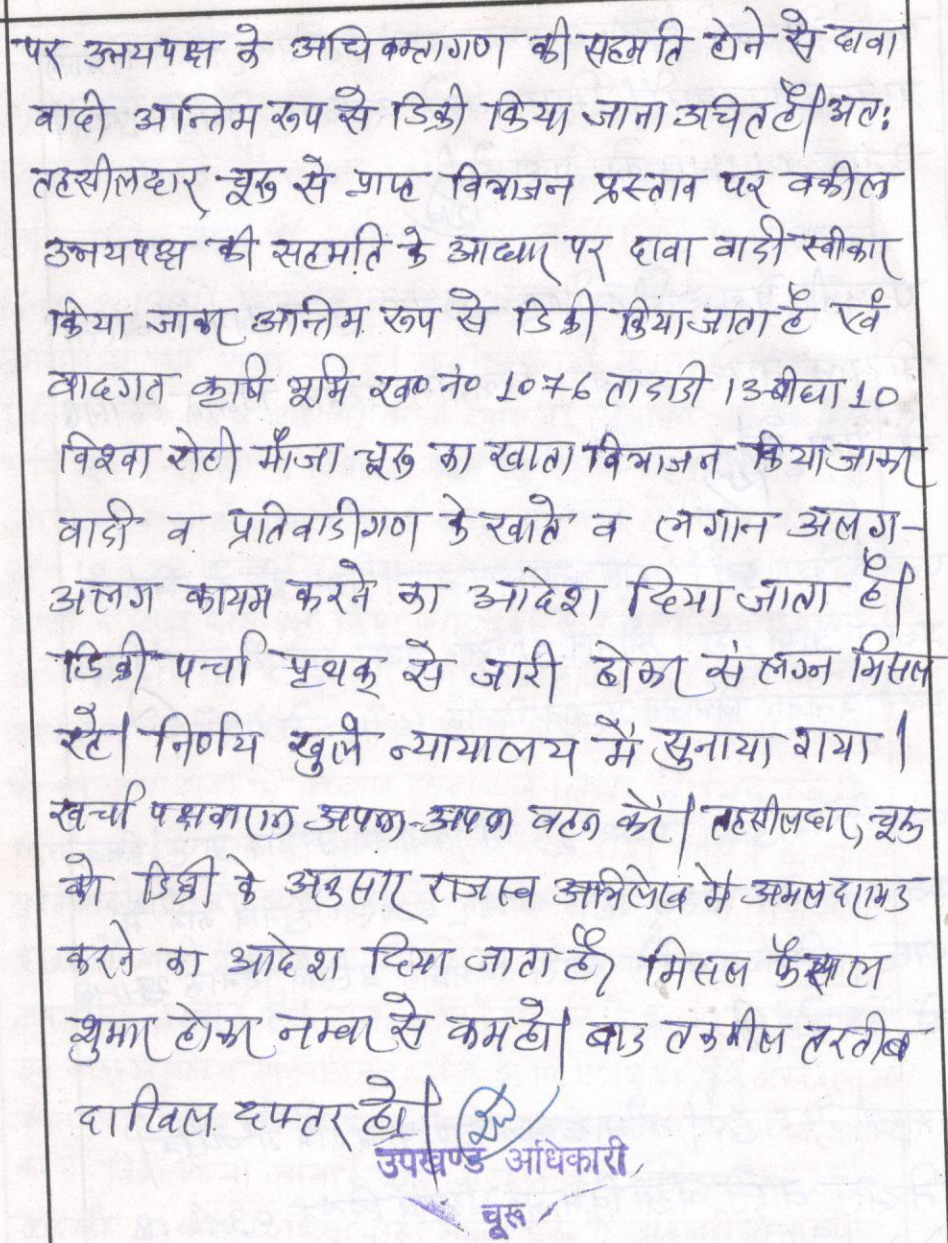 पर उभयपक्ष के अधिवक्तागण की सहमति होने से दावा
वादी अन्तिम रूप से डिक्री किया जाना उचित है। अतः
तहसीलदार, चूरू से प्राप्त विभाजन प्रस्ताव पर वकील
उभयपक्ष की सहमति के आधार पर दावा वादी स्वीकार
किया जाकर अन्तिम रूप से डिक्री किया जाता है एवं
वादगत कृषि भूमि ख०नं० 1076 तादादी 13 बीघा 10
विश्वा रोही मौजा चूरू का खाता विभाजन किया जाकर
वादी व प्रतिवादीगण के खाते व लगान अलग-
अलग कायम करने का आदेश दिया जाता है।
डिक्री पर्चा पृथक् से जारी होकर संलग्न मिसल
रहे। निर्णय खुले न्यायालय में सुनाया गया।
खर्चा पक्षकारान अपना-अपना वहन करें। तहसीलदार, चूरू
को डिक्री के अनुसार राजस्व अभिलेख में अमलदरामद
करने का आदेश दिया जाता है। मिसल फैसल
शुमार होकर नम्बर से कम हो। बाद तकमील तरतीब
दाखिल दफ्तर हो।
उपखण्ड अधिकारी
चूरू